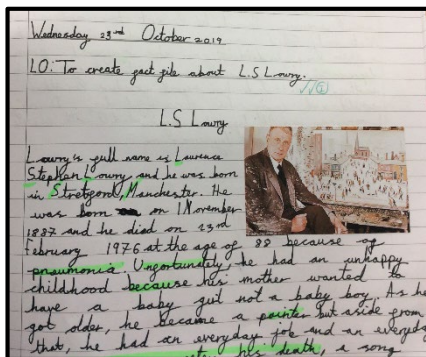 Wednesday 23rd October 2019
LO: To create fact file about L.S Lowry.
L.S Lowry
Lowry's full name is Laurence
Stephen Lowry and he was born
in Stretford, Manchester. He
was born on 1 November
1887 and he died on 23rd
February 1976 at the age of 88 because of
pnumonia. Unfortunately, he had an unhappy
childhood because his mother wanted to
have a baby girl not a baby boy. As he
got older, he became a painter but aside from
that, he had an everyday job and an everyday
his death, a song